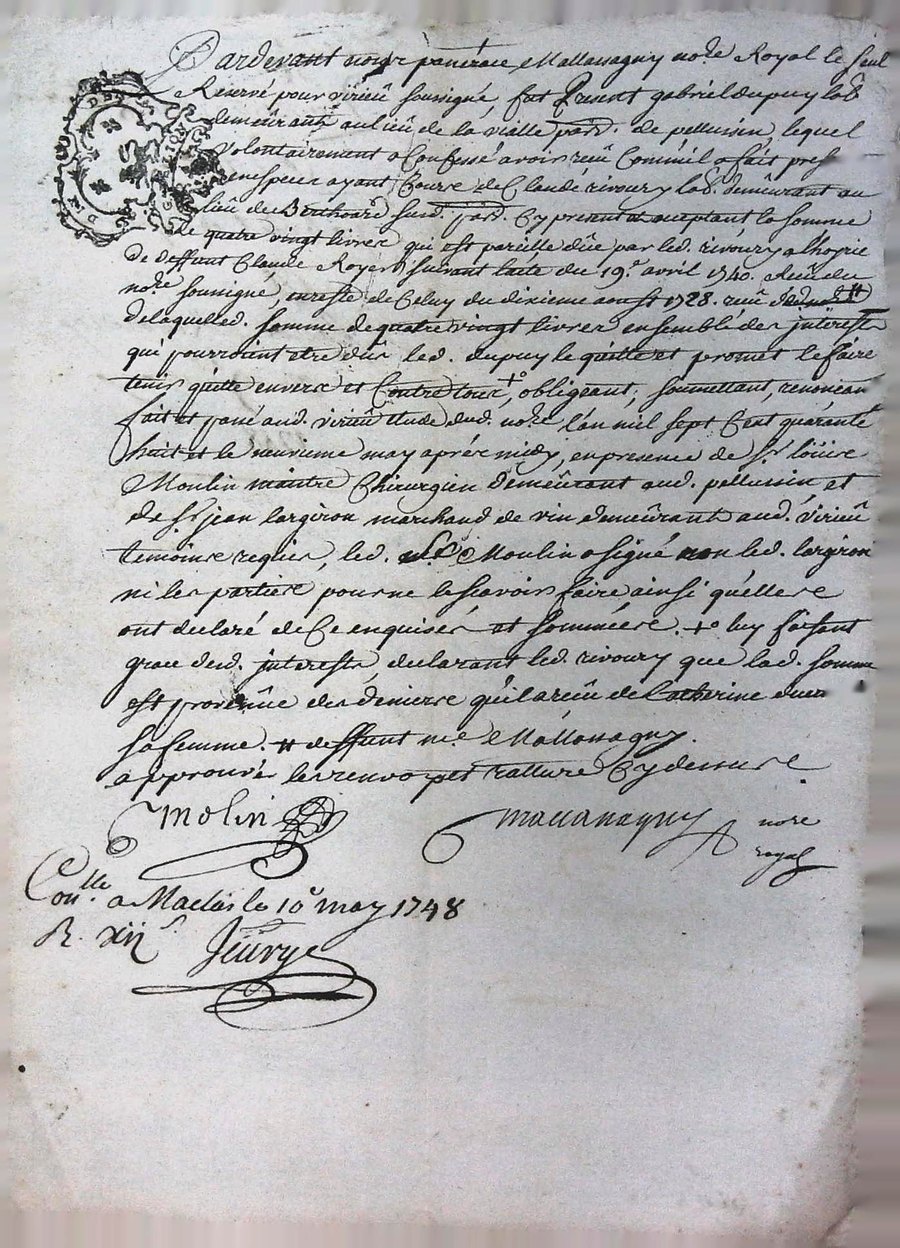 Pardevant nous pancrace Mallassagny no.re Royal le seul
Reservé pour virieu soussigné, fut Present gabriel dupuy lab.
demeurant au lieu de la vialle parr. de pellussin, lequel
volontairement a Confessé avoir reçu Comme il a fait pres
en especes ayant Cours de Claude rivoury lab. demeurant au
lieu de susd. parr. Cy present et acceptant la somme
de quatre vingt livres qui est pareille düe par led. rivoury a l'hoirie
de deffunt Claude Royer suivant lacte du 19.e avril 1740. Reçû du
no.re soussigné, en reste de Celuy du dixieme aoust 1728. reçû #
de laquelled. somme de quatre vingt livres ensemble des jnterests
qui pourroint etre dûs led. dupuy le quitte et promet le faire
tenir quitte envers et Contre tous +o, obligeant, soumettant, renoncan
fait et passé aud. virieû etude dud. no.re, l'an mil sept Cent quarante
huit et le neuvieme may aprés midy, en presence de S.r loüis
Moulin maitre Chirurgien demeûrant aud. pellussin et
de S.r jean largiron marchand de vin demeûrant aud. virieû
temoins requis, led. Moulin a signé non led. largiron
ni les parties pour ne le scavoir faire ainsi quelles
ont declaré de Ce enquises et sommées. +o luy faisant
grace desd. jnterests, declarant led. rivoury que lad. somme
est provenûe des deniers qu'il a reçû de Catherine
sa femme. # deffunt m.e Mallassagny.
approuvés les renvoys et rature Cy dessus
Molin Mallassagny no.re
royal
Con.lle a Maclas le 10.e may 1748
R. xii s. Jeurye